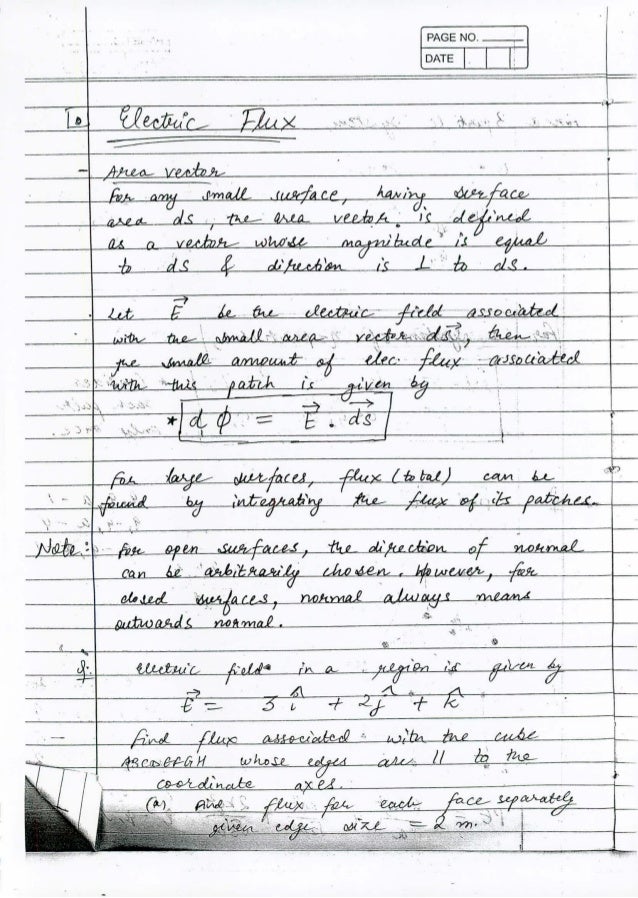 PAGE NO.
DATE
Electric Flux
- Area vector
For any small surface, having surface
area ds, the area vector is defined
as a vector whose magnitude is equal
to ds & direction is ⊥ to ds.
Let E⃗ be the electric field associated
with the small area vector ds⃗, then
the small amount of elec. flux associated
with this patch is given by
* dϕ = E⃗ . ds⃗
For large surfaces, flux (total) can be
found by integrating the flux of its patches.
Note: For open surfaces, the direction of normal
can be arbitrarily chosen. However, for
closed surfaces, normal always means
outwards normal.
Q. Electric field in a region is given by
E⃗ = 3î + 2ĵ + k̂
Find flux associated with the cube
ABCDEFGH whose edges are || to the
coordinate axes.
(a) Find flux for each face separately
given edge size = 2 m.